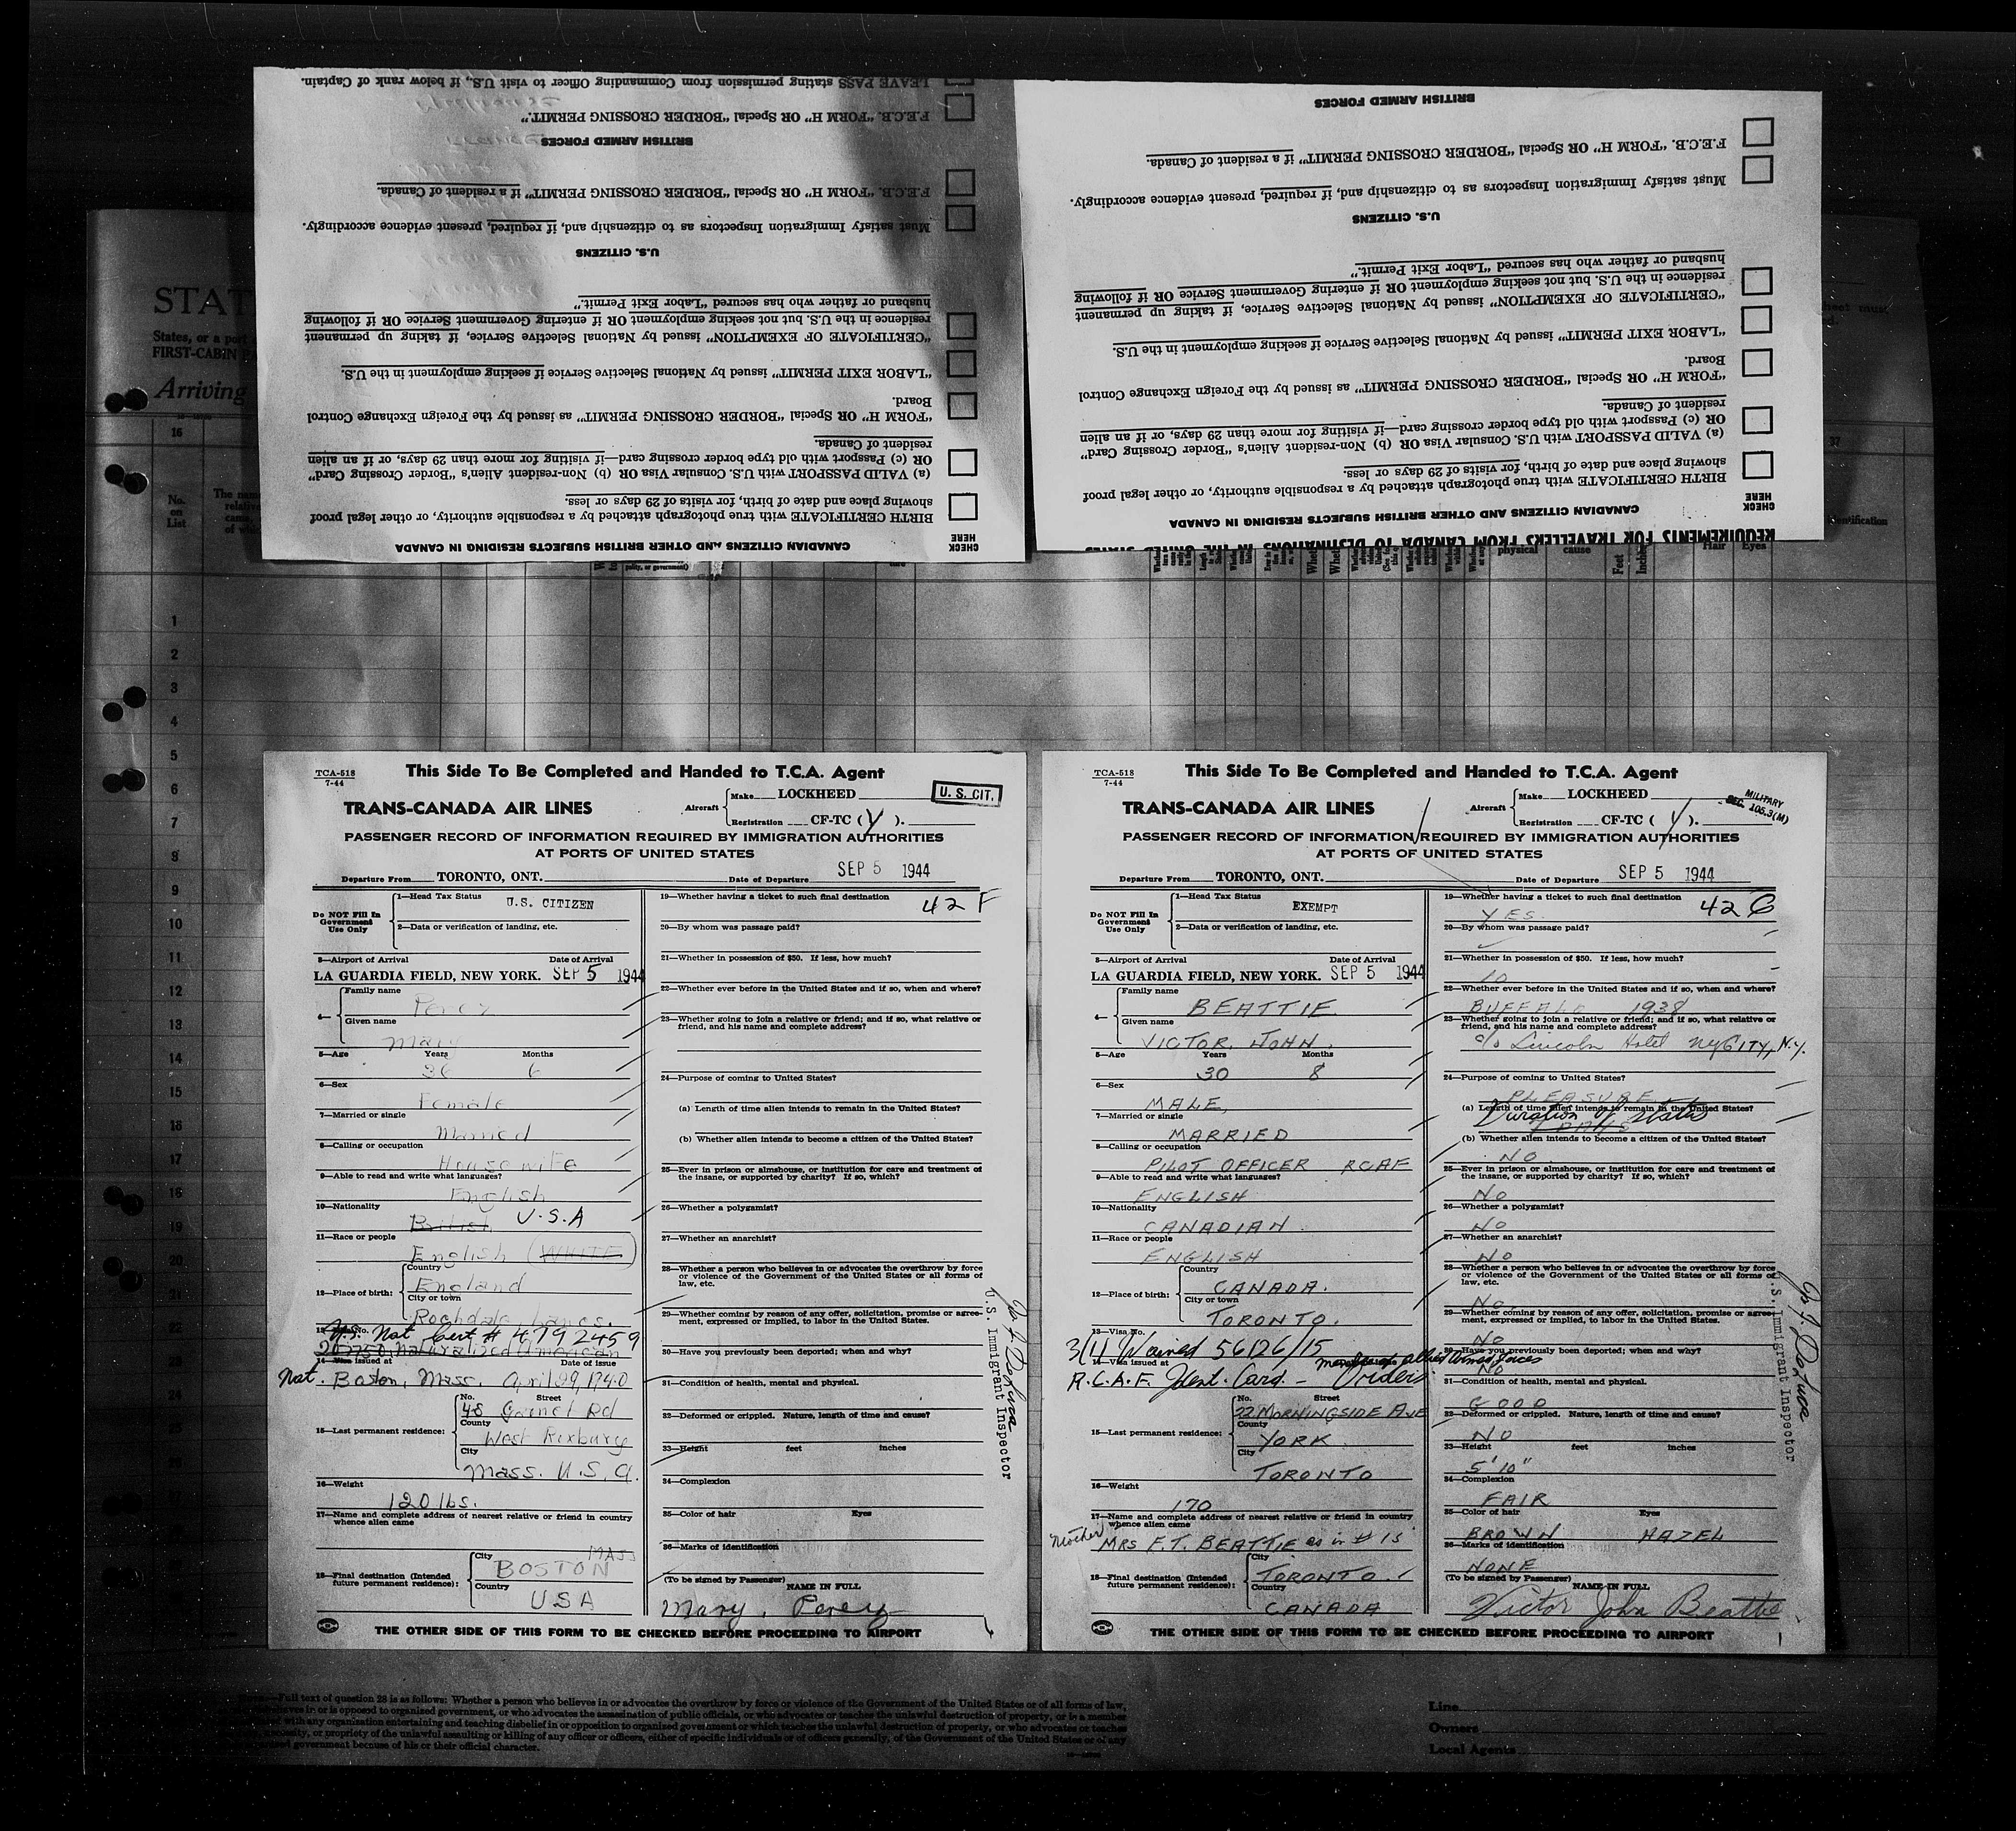 LEAVE PASS stating permission from Commanding Officer to visit U.S., if below rank of Captain.
F.E.C.B. "FORM H" OR Special "BORDER CROSSING PERMIT."
BRITISH ARMED FORCES
F.E.C.B. "FORM H" OR Special "BORDER CROSSING PERMIT" if a resident of Canada.
Must satisfy Immigration Inspectors as to citizenship and, if required, present evidence accordingly.
U.S. CITIZENS
husband or father who has secured "Labor Exit Permit."
residence in the U.S. but not seeking employment OR if entering Government Service OR if following
"CERTIFICATE OF EXEMPTION" issued by National Selective Service, if taking up permanent
"LABOR EXIT PERMIT" issued by National Selective Service if seeking employment in the U.S.
Board.
"FORM H" OR Special "BORDER CROSSING PERMIT" as issued by the Foreign Exchange Control
resident of Canada.
OR (c) Passport with old type border crossing card—if visiting for more than 29 days, or if an alien
(a) VALID PASSPORT with U.S. Consular Visa OR (b) Non-resident Alien's "Border Crossing Card"
showing place and date of birth, for visits of 29 days or less.
BIRTH CERTIFICATE with true photograph attached by a responsible authority, or other legal proof
CHECK HERE
CANADIAN CITIZENS AND OTHER BRITISH SUBJECTS RESIDING IN CANADA
BRITISH ARMED FORCES
F.E.C.B. "FORM H" OR Special "BORDER CROSSING PERMIT" if a resident of Canada.
Must satisfy Immigration Inspectors as to citizenship and, if required, present evidence accordingly.
U.S. CITIZENS
husband or father who has secured "Labor Exit Permit."
residence in the U.S. but not seeking employment OR if entering Government Service OR if following
"CERTIFICATE OF EXEMPTION" issued by National Selective Service, if taking up permanent
"LABOR EXIT PERMIT" issued by National Selective Service if seeking employment in the U.S.
Board.
"FORM H" OR Special "BORDER CROSSING PERMIT" as issued by the Foreign Exchange Control
resident of Canada.
OR (c) Passport with old type border crossing card—if visiting for more than 29 days, or if an alien
(a) VALID PASSPORT with U.S. Consular Visa OR (b) Non-resident Alien's "Border Crossing Card"
showing place and date of birth, for visits of 29 days or less.
BIRTH CERTIFICATE with true photograph attached by a responsible authority, or other legal proof
CHECK HERE
CANADIAN CITIZENS AND OTHER BRITISH SUBJECTS RESIDING IN CANADA
REQUIREMENTS FOR TRAVELLERS FROM CANADA TO DESTINATIONS IN THE UNITED STATES
STAT
States, or a port
FIRST-CABIN P
Arriving
16
No. on List
physical cause
Feet
Hair Eyes
1
2
3
4
5
6
7
8
9
10
11
12
13
14
15
TCA-518
7-44
This Side To Be Completed and Handed to T.C.A. Agent
TRANS-CANADA AIR LINES
Aircraft Make LOCKHEED
U. S. CIT.
Registration CF-TC ( Y ).
PASSENGER RECORD OF INFORMATION REQUIRED BY IMMIGRATION AUTHORITIES
AT PORTS OF UNITED STATES
Departure From TORONTO, ONT. Date of Departure SEP 5 1944
Do NOT Fill In Government Use Only
1—Head Tax Status U.S. CITIZEN
2—Data or verification of landing, etc.
3—Airport of Arrival Date of Arrival
LA GUARDIA FIELD, NEW YORK. SEP 5 1944
4— Family name Perey
Given name Mary
5—Age Years Months
36 6
6—Sex
Female
7—Married or single
Married
8—Calling or occupation
Housewife
9—Able to read and write what languages?
English
10—Nationality
British U.S.A
11—Race or people
English (WHITE)
12—Place of birth: Country
England
City or town
Rochdale Lancs.
13—Visa No.
U.S. Nat Cert # 4792459
Naturalized American
14—Visa issued at Date of issue
Nat. Boston, Mass. April 29, 1940
15—Last permanent residence: No. Street
48 Garnet Rd
County
West Roxbury
City
Mass. U.S.A.
16—Weight
120 lbs.
17—Name and complete address of nearest relative or friend in country whence alien came
18—Final destination (Intended future permanent residence): City
BOSTON MASS
Country
USA
19—Whether having a ticket to such final destination 42 F
20—By whom was passage paid?
21—Whether in possession of $50. If less, how much?
22—Whether ever before in the United States and if so, when and where?
23—Whether going to join a relative or friend; and if so, what relative or friend, and his name and complete address?
24—Purpose of coming to United States?
(a) Length of time alien intends to remain in the United States?
(b) Whether alien intends to become a citizen of the United States?
25—Ever in prison or almshouse, or institution for care and treatment of the insane, or supported by charity? If so, which?
26—Whether a polygamist?
27—Whether an anarchist?
28—Whether a person who believes in or advocates the overthrow by force or violence of the Government of the United States or all forms of law, etc.
29—Whether coming by reason of any offer, solicitation, promise or agreement, expressed or implied, to labor in the United States.
30—Have you previously been deported; when and why?
31—Condition of health, mental and physical.
32—Deformed or crippled. Nature, length of time and cause?
33—Height feet inches
34—Complexion
35—Color of hair Eyes
36—Marks of identification
(To be signed by Passenger) NAME IN FULL
Mary. Perey
U.S. Immigrant Inspector
THE OTHER SIDE OF THIS FORM TO BE CHECKED BEFORE PROCEEDING TO AIRPORT
TCA-518
7-44
This Side To Be Completed and Handed to T.C.A. Agent
TRANS-CANADA AIR LINES
Aircraft Make LOCKHEED
MILITARY
SEC. 105.3(M)
Registration CF-TC ( Y ).
PASSENGER RECORD OF INFORMATION REQUIRED BY IMMIGRATION AUTHORITIES
AT PORTS OF UNITED STATES
Departure From TORONTO, ONT. Date of Departure SEP 5 1944
Do NOT Fill In Government Use Only
1—Head Tax Status EXEMPT
2—Data or verification of landing, etc.
3—Airport of Arrival Date of Arrival
LA GUARDIA FIELD, NEW YORK. SEP 5 1944
4— Family name
BEATTIE
Given name
VICTOR JOHN.
5—Age Years Months
30 8
6—Sex
MALE
7—Married or single
MARRIED
8—Calling or occupation
PILOT OFFICER RCAF
9—Able to read and write what languages?
ENGLISH
10—Nationality
CANADIAN
11—Race or people
ENGLISH
12—Place of birth: Country
CANADA.
City or town
TORONTO.
13—Visa No.
3(1) Waived 56126/15
14—Visa issued at allied Armed forces
R.C.A.F. Ident. Card. - Orders
15—Last permanent residence: No. Street
22 MORNINGSIDE AVE
County
YORK
City
TORONTO
16—Weight
170
17—Name and complete address of nearest relative or friend in country whence alien came
Mother MRS F.T. BEATTIE as in # 15
18—Final destination (Intended future permanent residence): City
TORONTO.
Country
CANADA
19—Whether having a ticket to such final destination 42 G
YES.
20—By whom was passage paid?
21—Whether in possession of $50. If less, how much?
22—Whether ever before in the United States and if so, when and where?
BUFFALO 1938
23—Whether going to join a relative or friend; and if so, what relative or friend, and his name and complete address?
c/o Lincoln Hotel NYCITY, N.Y.
24—Purpose of coming to United States?
PLEASURE
(a) Length of time alien intends to remain in the United States?
Duration of Status
(b) Whether alien intends to become a citizen of the United States?
NO
25—Ever in prison or almshouse, or institution for care and treatment of the insane, or supported by charity? If so, which?
NO
26—Whether a polygamist?
NO
27—Whether an anarchist?
NO
28—Whether a person who believes in or advocates the overthrow by force or violence of the Government of the United States or all forms of law, etc.
NO
29—Whether coming by reason of any offer, solicitation, promise or agreement, expressed or implied, to labor in the United States.
NO
30—Have you previously been deported; when and why?
NO
31—Condition of health, mental and physical.
GOOD
32—Deformed or crippled. Nature, length of time and cause?
NO
33—Height feet inches
5'10"
34—Complexion
FAIR
35—Color of hair Eyes
BROWN HAZEL
36—Marks of identification
NONE
(To be signed by Passenger) NAME IN FULL
Victor John Beattie
U.S. Immigrant Inspector
THE OTHER SIDE OF THIS FORM TO BE CHECKED BEFORE PROCEEDING TO AIRPORT
Full text of question 28 is as follows: Whether a person who believes in or advocates the overthrow by force or violence of the Government of the United States or of all forms of law,
or is opposed to organized government, or who advocates the assassination of public officials, or who advocates or teaches the unlawful destruction of property, or is a member
with any organization entertaining and teaching disbelief in or opposition to organized government or which teaches the unlawful destruction of property, or who advocates or teaches
or propriety of the unlawful assaulting or killing of any officer or officers, either of specific individuals or of officers generally, of the Government of the United States or of any
government because of his or their official character.
Line
Owners
Local Agents